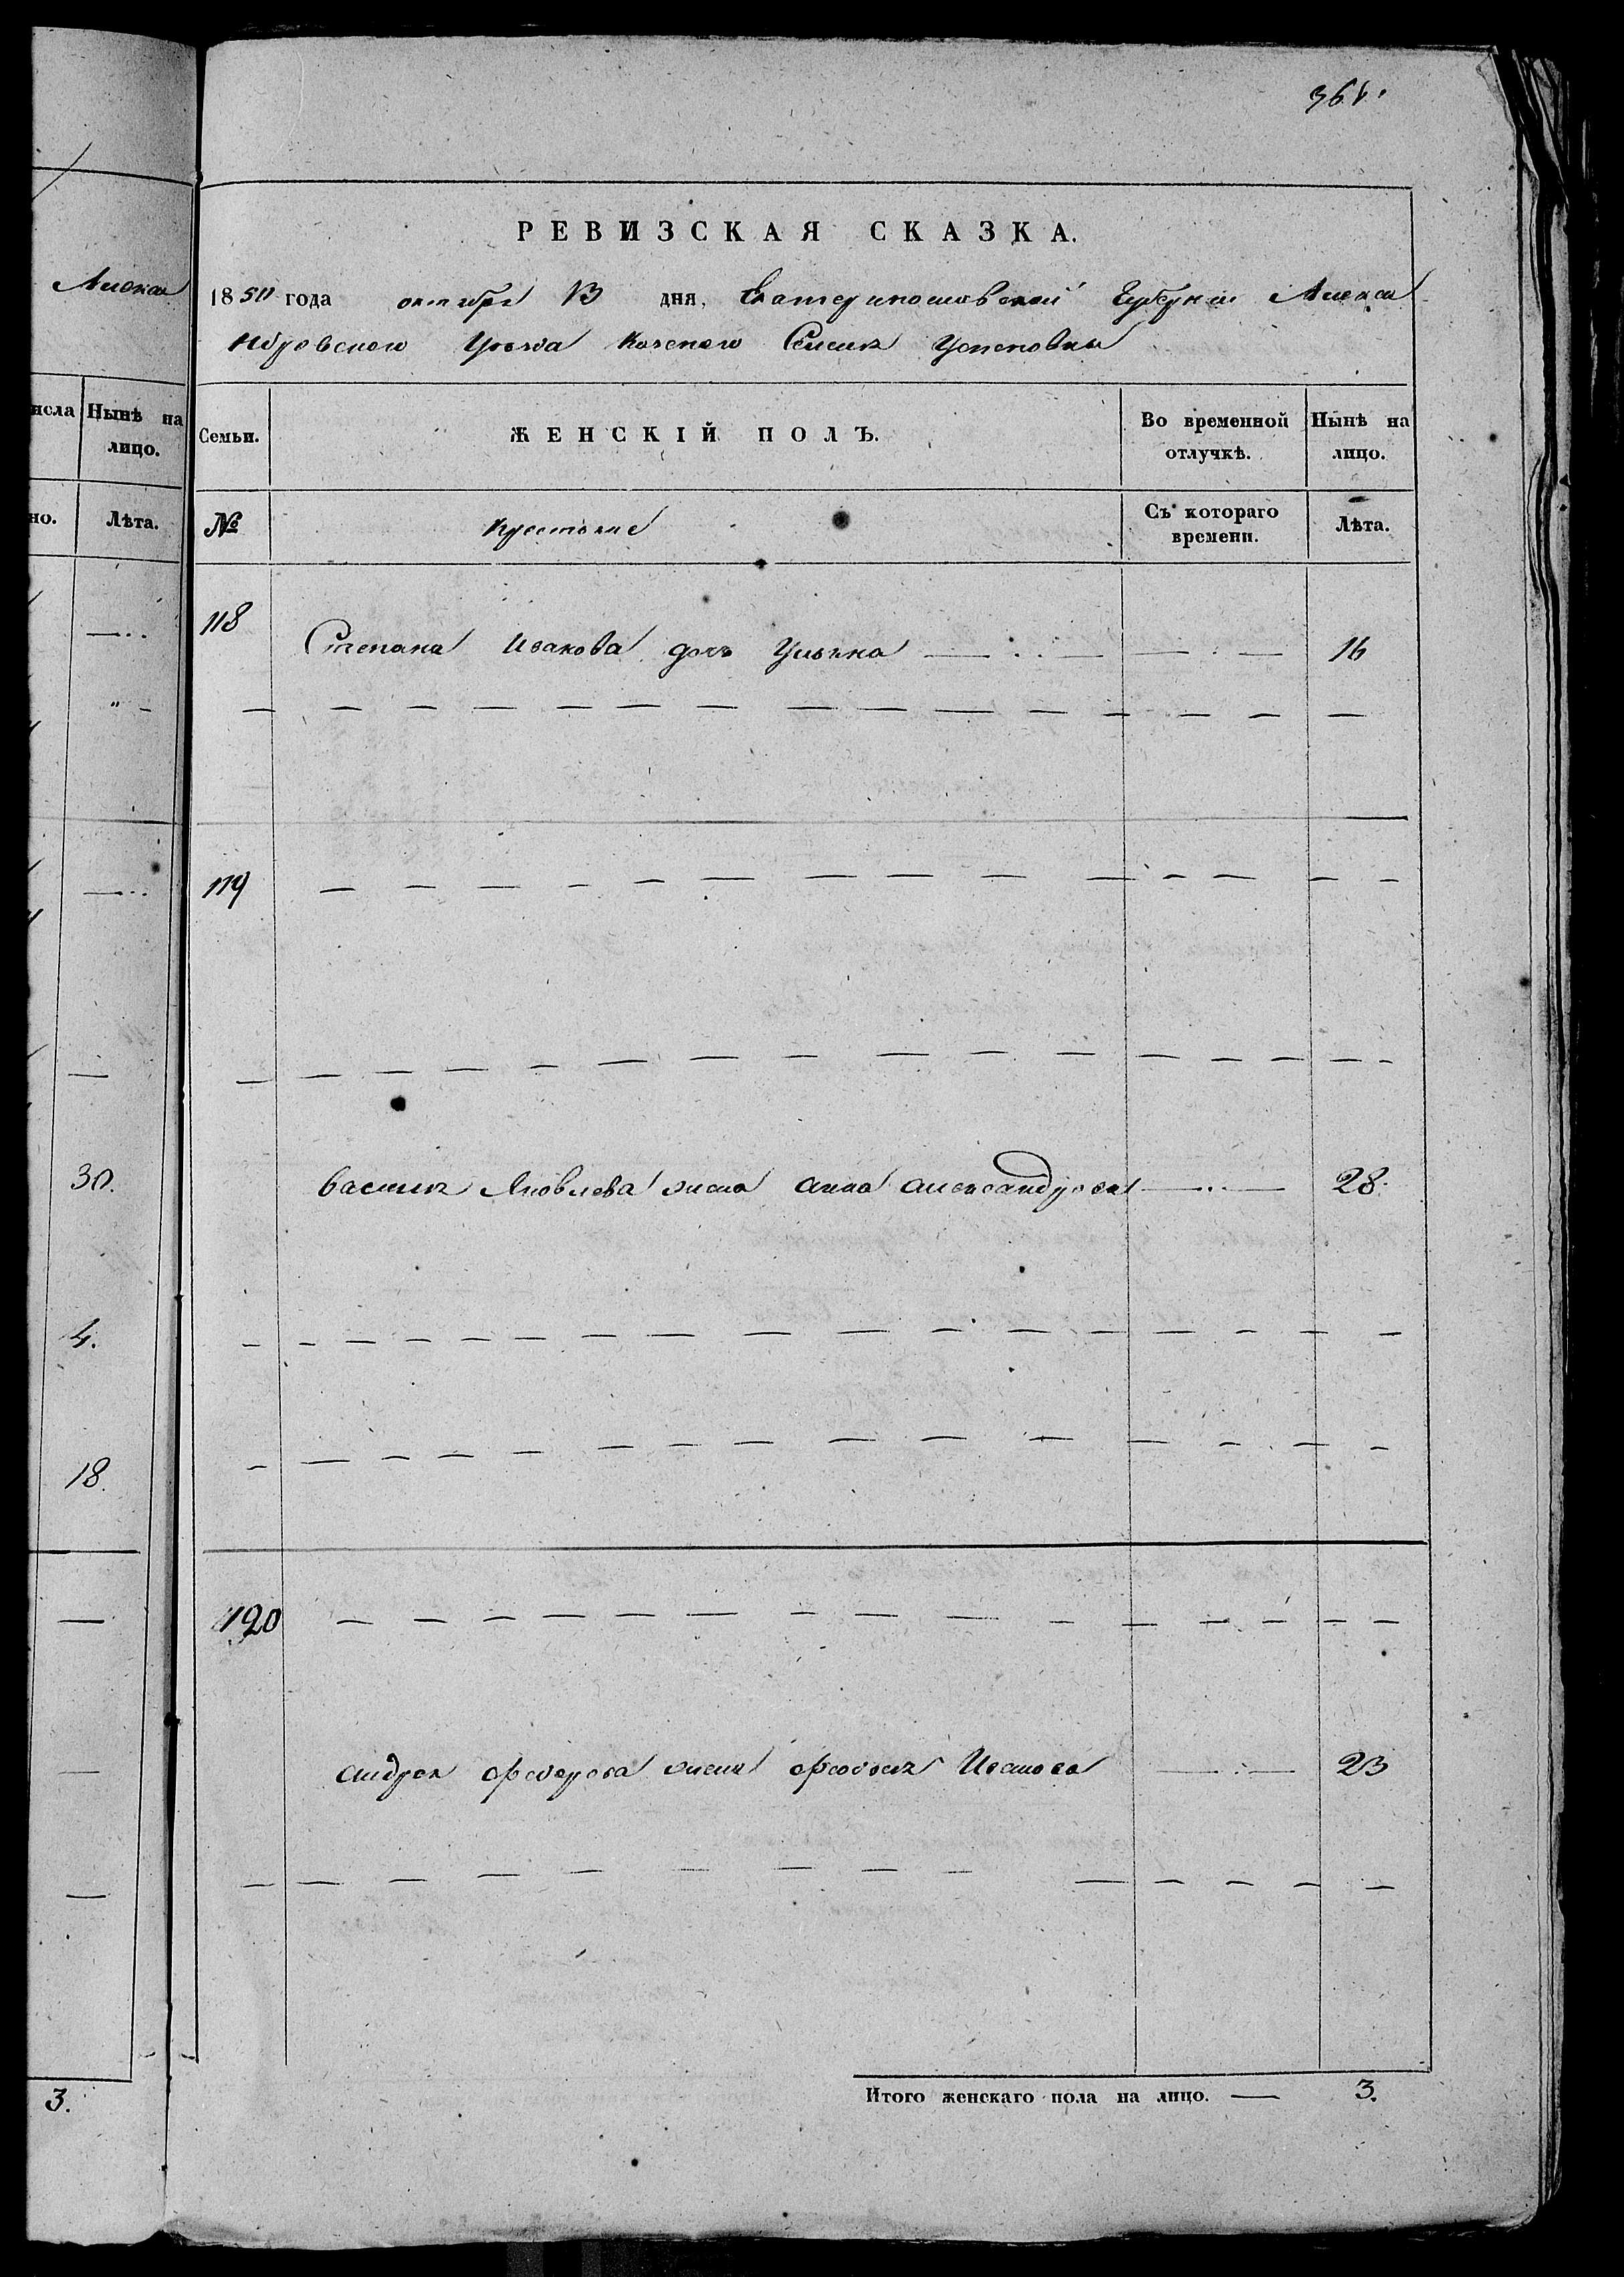 Алекса
нсла
Нынѣ на
лицо.
но.
Лѣта.
30.
4.
18.
3.
361.
РЕВИЗСКАЯ СКАЗКА.
1850 года октября 13 дня, Екатеринославской Губернии Алекса
ндровского Уѣзда Казенного Селенія Успеновки
Семьи.
ЖЕНСКІЙ ПОЛЪ.
Во временной
отлучкѣ.
Нынѣ на
лицо.
№
Крестьяне
Съ котораго
времени.
Лѣта.
118
Степана Исакова дочь Ульяна 16
119
Василия Яковлева жена Анна Александрова 28.
120
Андрея Федорова жена Иванова 23
Итого женскаго пола на лицо. — 3.